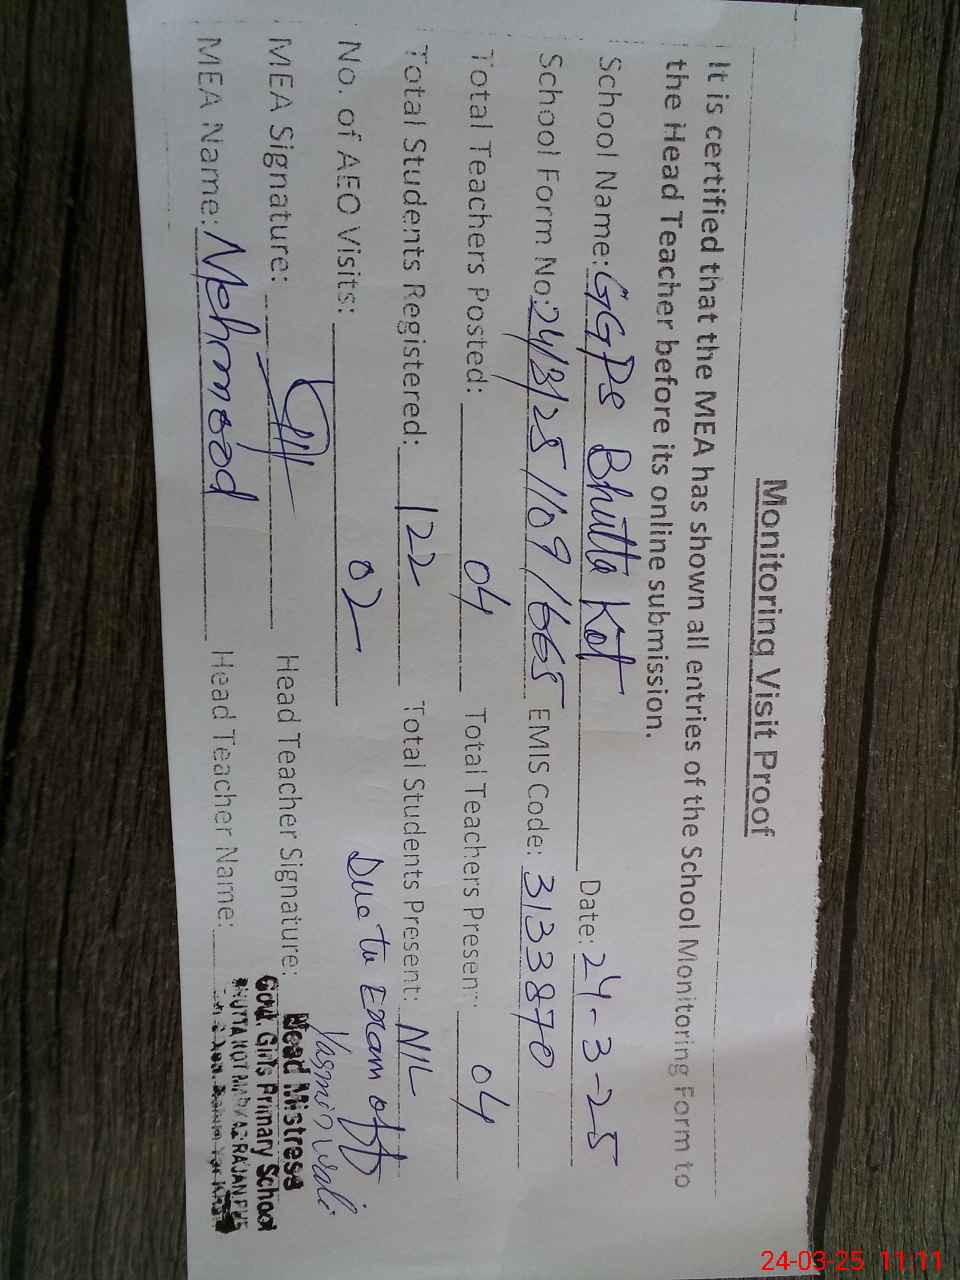 Monitoring Visit Proof
It is certified that the MEA has shown all entries of the School Monitoring Form to
the Head Teacher before its online submission.
School Name: GGPS Bhutta Kot Date: 24-3-25
School Form No: 24/3/25/109/1665 EMIS Code: 3133870
Total Teachers Posted: 04 Total Teachers Present: 04
Total Students Registered: 122 Total Students Present: NIL
No. of AEO Visits: 02 Due to Exam off
MEA Signature: Head Teacher Signature: Yasmin
Head Mistress
MEA Name: Mehmood Head Teacher Name:
Govt. Girls Primary School
BHUTTA KOT
24-03-25 11:11